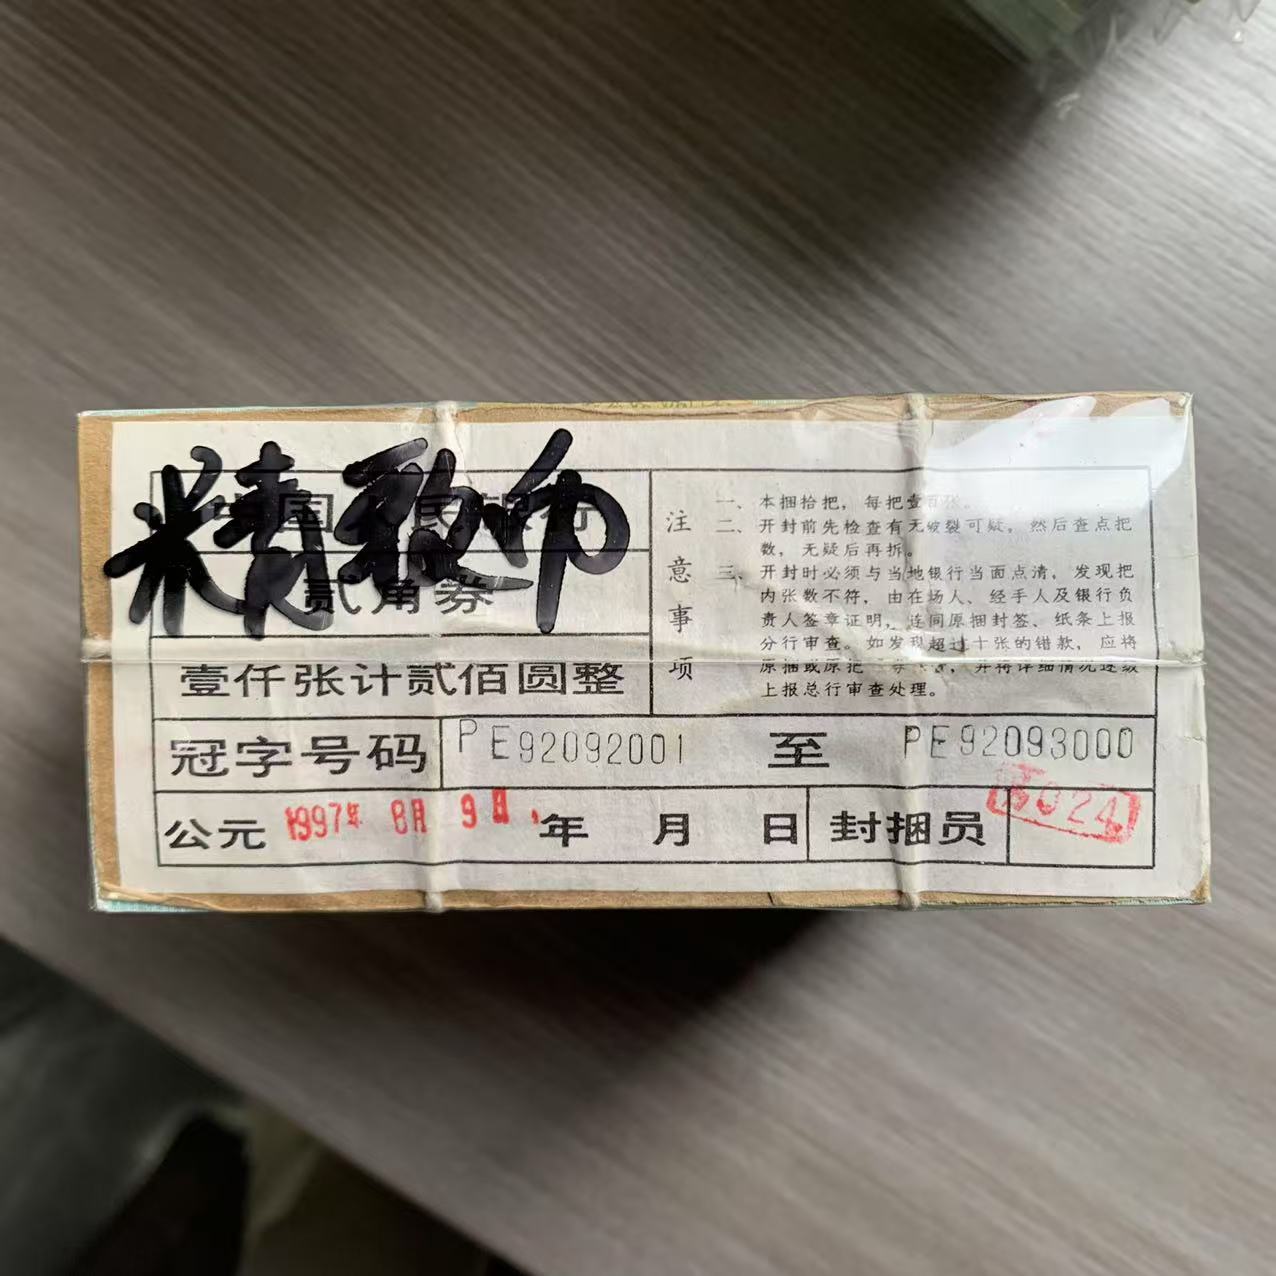 精致印
中国人民银行
贰角券
壹仟张计贰佰圆整
注意事项
一、本捆拾把，每把壹百张。
二、开封前先检查有无破裂可疑，然后查点把
数，无疑后再拆。
三、开封时必须与当地银行当面点清，发现把
内张数不符，由在场人、经手人及银行负
责人签章证明，连同原捆封签、纸条上报
分行审查。如发现超过十张的错款，应将
原捆或原把 ，并将详细情况逐级
上报总行审查处理。
冠字号码 PE92092001 至 PE92093000
公元 1997年 8月 9日 年 月 日 封捆员 024